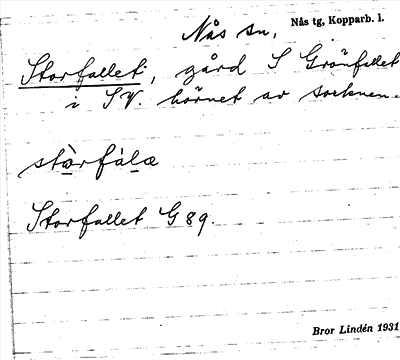 Nås sn, Nås tg, Kopparb. l.
Storfallet, gård S Grönfallet
i SV. hörnet av socknen.
stàrfálæ
Storfallet G 89.
Bror Lindén 1931